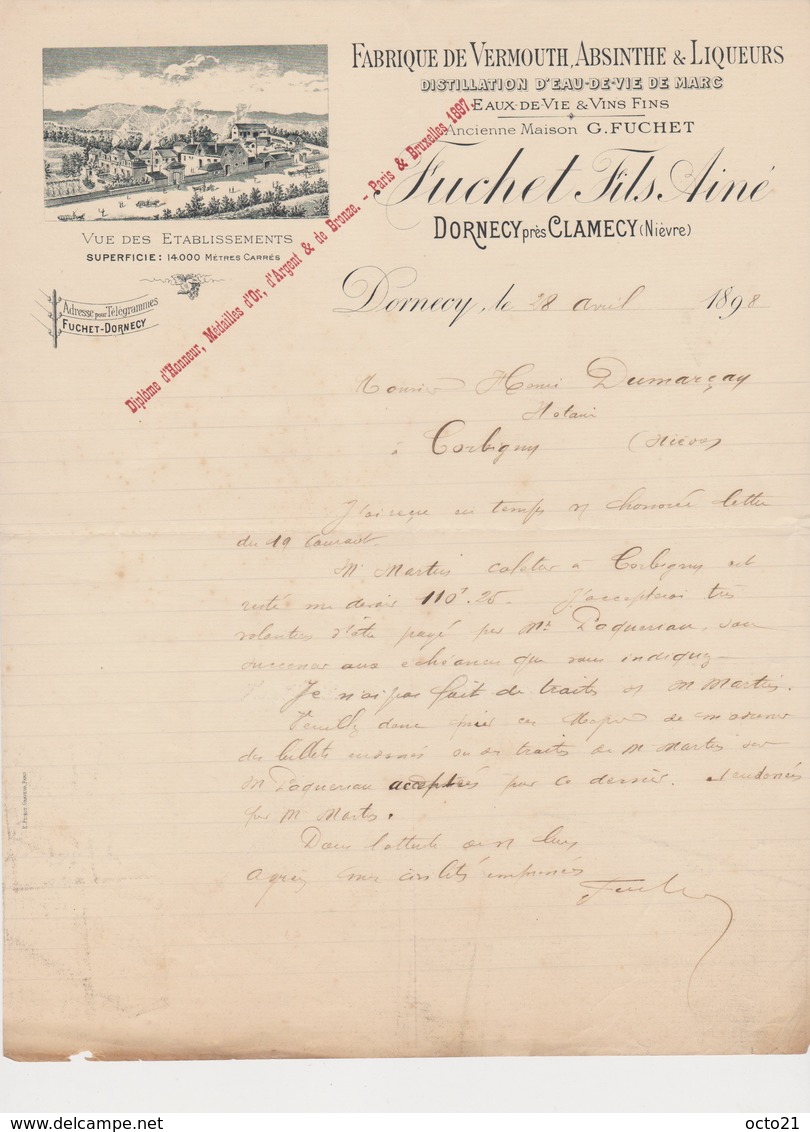 FABRIQUE DE VERMOUTH, ABSINTHE & LIQUEURS
DISTILLATION D'EAU-DE-VIE DE MARC
EAUX-DE-VIE & VINS FINS
Ancienne Maison G. FUCHET
Fuchet Fils Ainé
DORNECY près CLAMECY (Nièvre)
VUE DES ETABLISSEMENTS
SUPERFICIE: 14.000 MÈTRES CARRÉS
Adresse pour Télégrammes
FUCHET-DORNECY
Diplôme d'Honneur, Médailles d'Or, d'Argent & de Bronze. - Paris & Bruxelles 1897.
Dornecy, le 28 avril 1898
Monsieur Henri Dumarçay
Notaire
à Corbigny (Nièvre)
J'ai reçu en temps v/ honorée lettre
du 19 courant.
Mr Martin à Corbigny est
resté me devoir 110f.25. J'accepterai très
volontiers d'être payé par Mr Paquereau, son
successeur aux échéances que vous indiquez
Je n'ai pas fait de traites s/ M Martin.
Veuillez donc
des billets endossés ou des traites de M Martin sur
M Paquereau acceptés par ce dernier. et endossés
par M Martin.
Dans l'attente de v/
agréez mes civilités empressées
Fuchet
delcampe.net
octo21